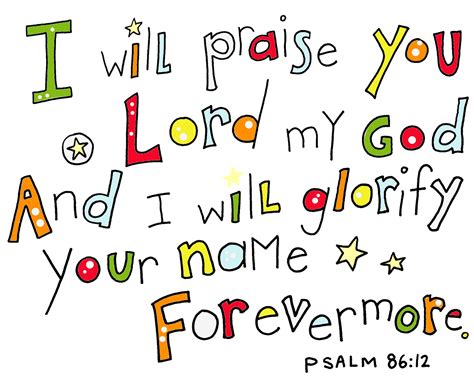 I will praise you
Lord my God
And I will glorify
your name
Forevermore.
PSALM 86:12